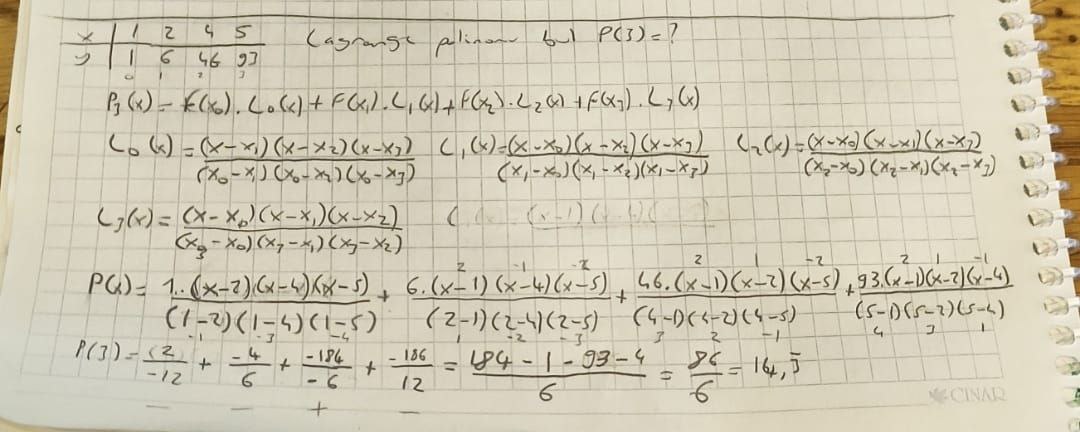 x | 1 2 4 5 Lagrange polinom bul P(3)=?
y | 1 6 46 93
0 1 2 3
P₃(x) = F(x₀).L₀(x) + F(x₁).L₁(x) + F(x₂).L₂(x) + F(x₃).L₃(x)
L₀(x) = (x-x₁)(x-x₂)(x-x₃) / (x₀-x₁)(x₀-x₂)(x₀-x₃) L₁(x) = (x-x₀)(x-x₂)(x-x₃) / (x₁-x₀)(x₁-x₂)(x₁-x₃) L₂(x) = (x-x₀)(x-x₁)(x-x₃) / (x₂-x₀)(x₂-x₁)(x₂-x₃)
L₃(x) = (x-x₀)(x-x₁)(x-x₂) / (x₃-x₀)(x₃-x₁)(x₃-x₂)
2 -1 -2 2 1 -2 2 1 -1
P(x) = 1.(x-2)(x-4)(x-5) / (1-2)(1-4)(1-5) + 6.(x-1)(x-4)(x-5) / (2-1)(2-4)(2-5) + 46.(x-1)(x-2)(x-5) / (4-1)(4-2)(4-5) + 93.(x-1)(x-2)(x-4) / (5-1)(5-2)(5-4)
-1 -3 -4 1 -2 -3 3 2 -1 4 3 1
P(3) = 2 / -12 + -4 / 6 + -184 / -6 + -186 / 12 = 184-1-93-4 / 6 = 86 / 6 = 14,3
- - + -
CINAR